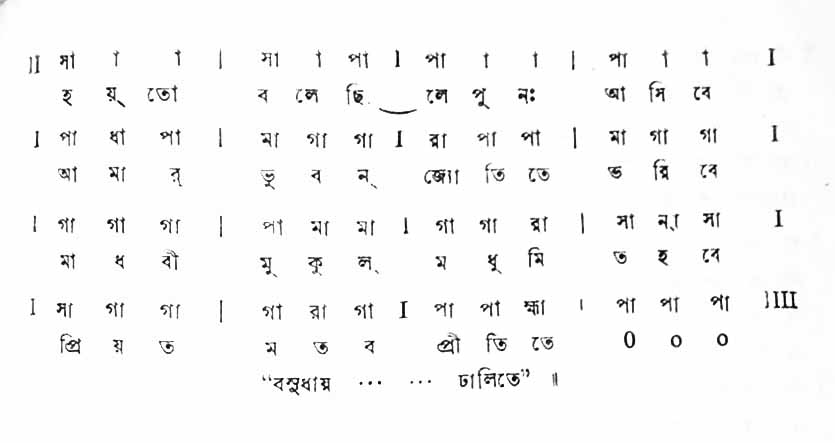 II সা া া | সা া পা I পা া া | পা া া I
হ য়্ তো ব লে ছি লে পু নঃ আ সি বে
I পা ধা পা | মা গা গা I রা পা পা | মা গা গা I
আ মা র্ ভু ব ন্ জ্যো তি তে ভ রি বে
I গা গা গা | পা মা মা I গা গা রা | সা ন্া সা I
মা ধ বী মু কু ল্ ম ধু মি ত হ বে
I সা গা গা | গা রা গা I পা পা হ্মা | পা পা পা }III
প্রি য় ত ম ত ব প্রী তি তে 0 o o
“বসুধায় ... ... ঢালিতে” ॥